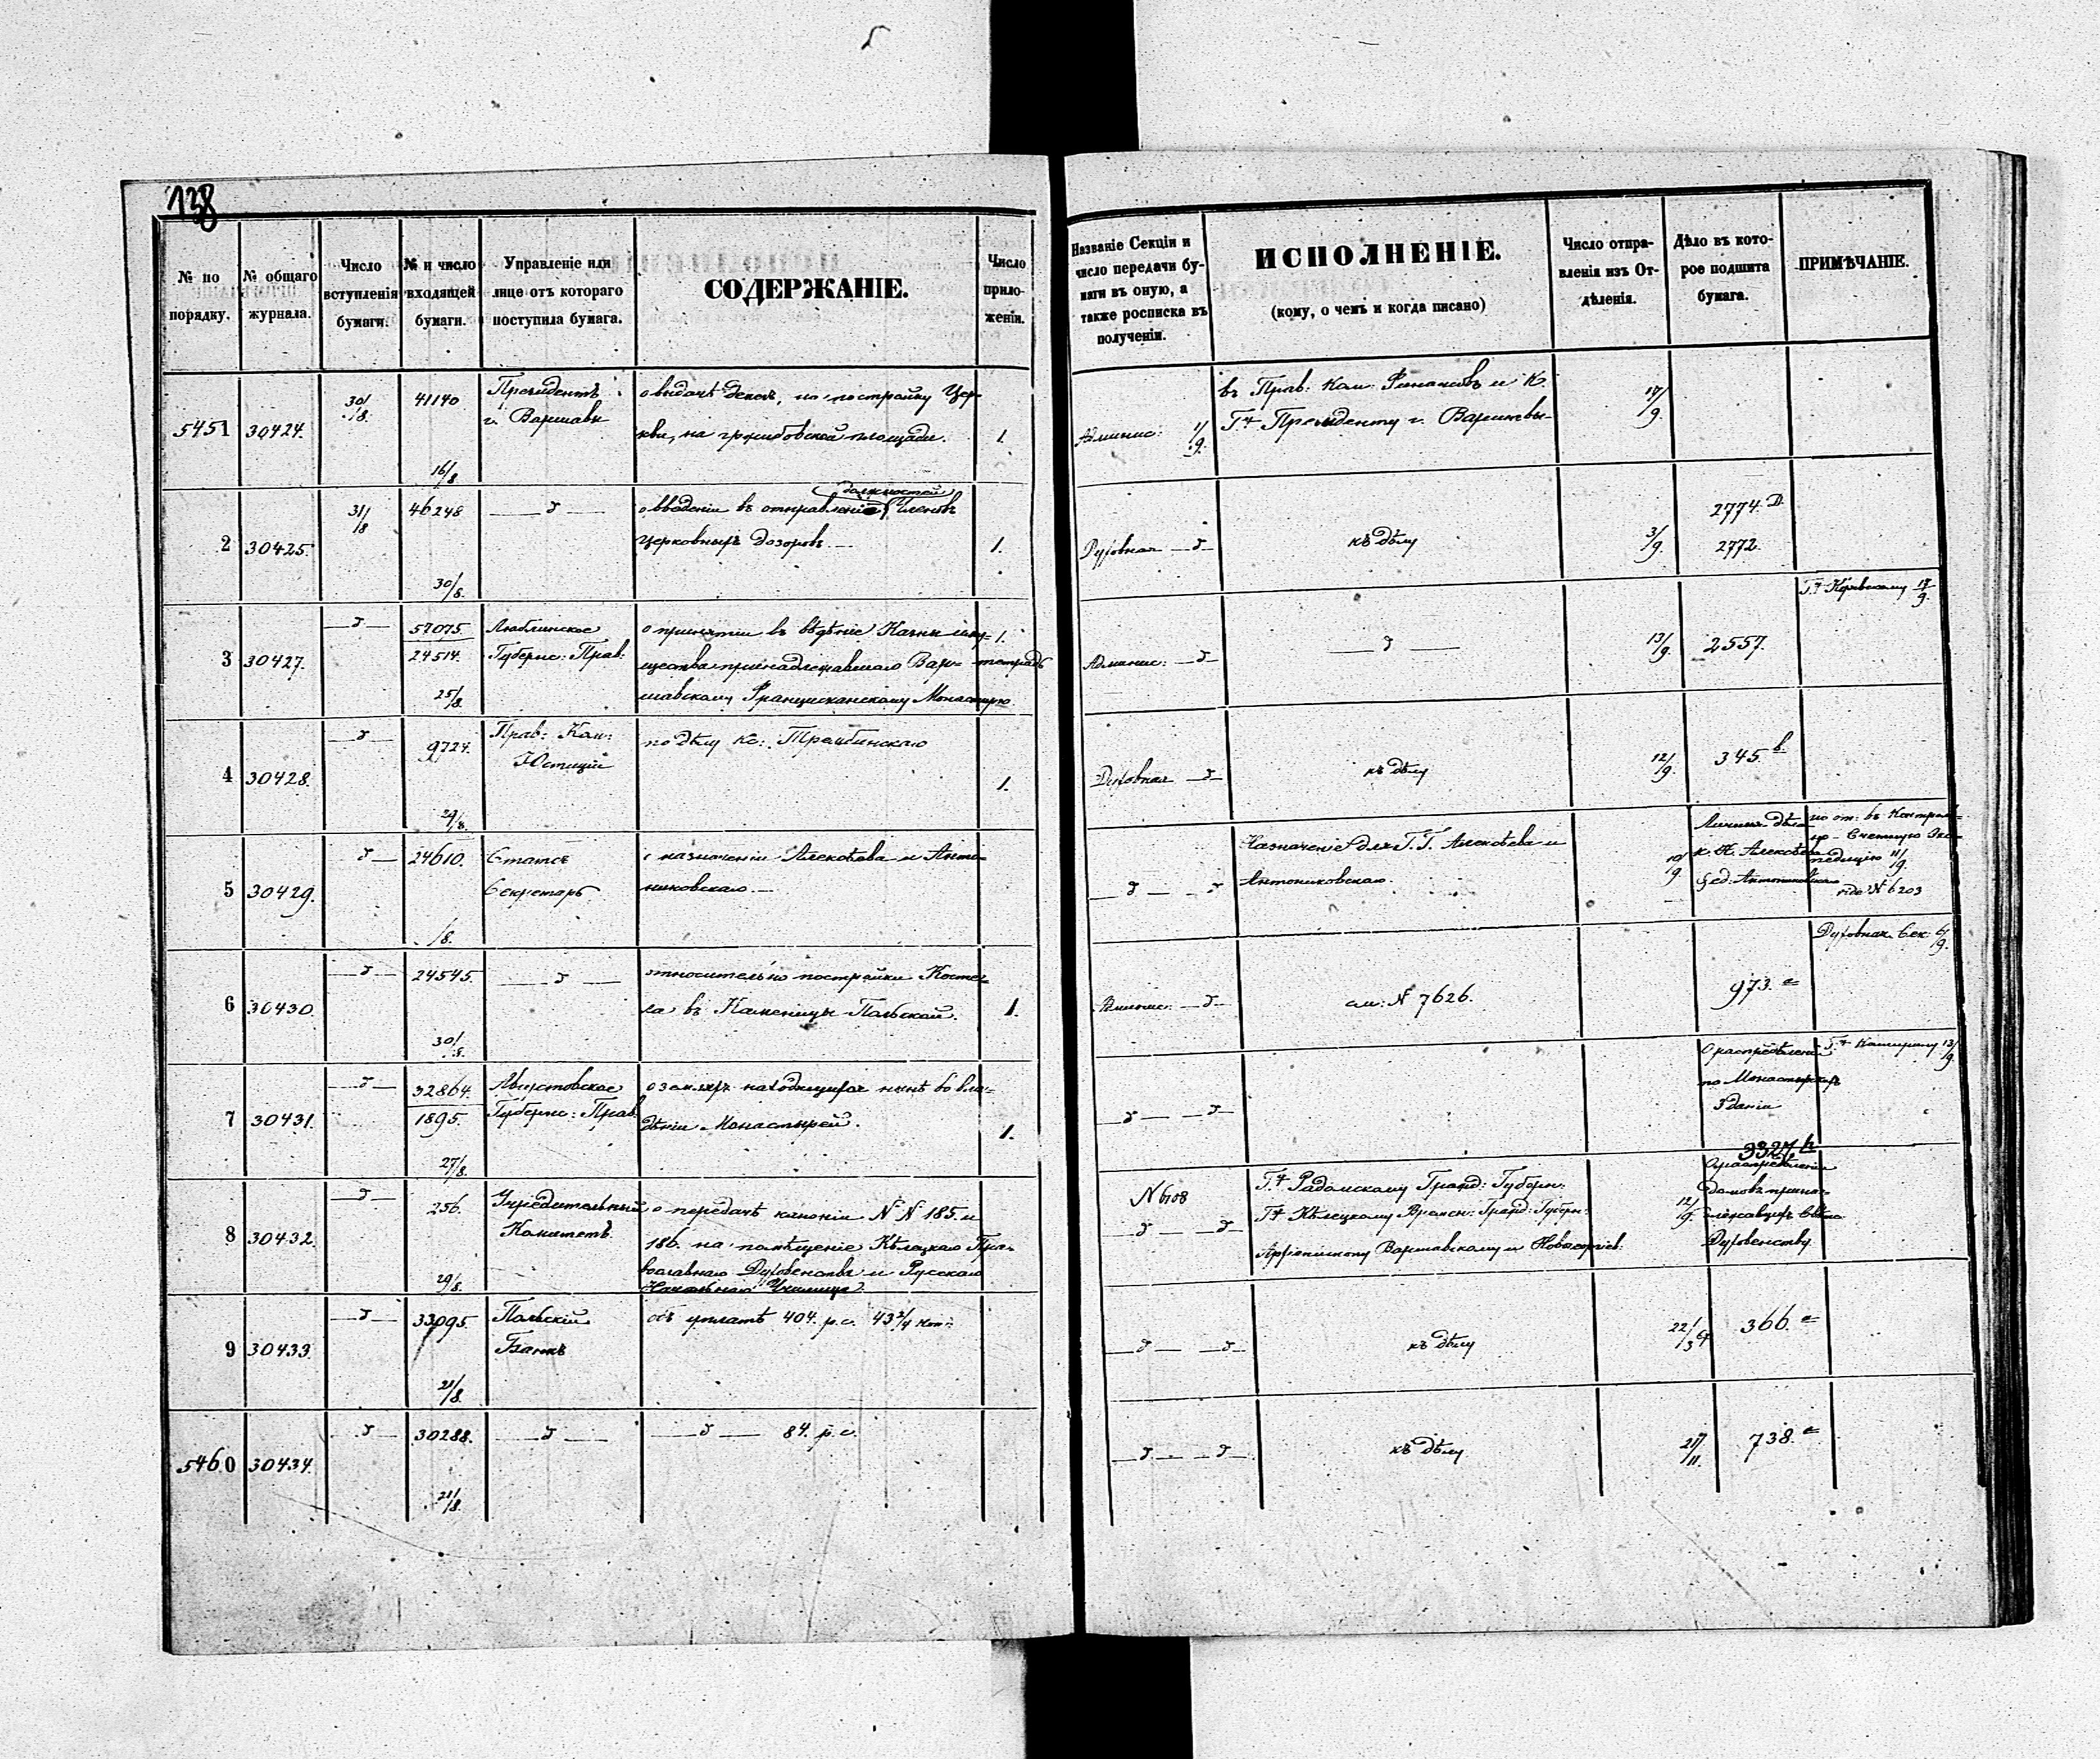 138
№ по порядку.
№ общаго журнала.
Число вступленія бумаги.
№ и число входящей бумаги.
Управленіе или лице отъ котораго поступила бумага.
СОДЕРЖАНІЕ.
Число приложеній.
Названіе Секціи и число передачи бумаги въ оную, а также росписка въ полученіи.
ИСПОЛНЕНІЕ.
(кому, о чемъ и когда писано)
Число отправленія изъ Отдѣленія.
Дѣло въ которое подшита бумага.
ПРИМѢЧАНІЕ.
5451 30424. 30/8. 41140 16/8
Президентъ
г. Варшавы
о выдачѣ денегъ, на постройку Цер-
кви, на гржибовской площади. 1.
Админис: 1/9.
въ Прав: Ком: Финансовъ и К.
Г. Президенту г. Варшавы 17/9.
2 30425. 31/8 46248 30/8.
должностей
о введеніи въ отправленіе Членовъ
церковныхъ дозоровъ. 1.
Духовная
къ дѣлу 3/9. 2774. 2772.
3 30427. 57075. 24514. 25/8.
Люблинское
Губернс: Прав:
о принятіи въ вѣдѣніе Казны иму= 1.
щества принадлежавшаго Вар= тетрадь
шавскому Францисканскому Монастырю
Админис: 13/9. 2557.
17/9.
4 30428. 9724. 29/8.
Прав: Ком:
Юстиціи
по дѣлу Кс: Трембинскаго 1.
Духовная
къ дѣлу 12/9. 345.
5 30429. 24610. /8.
Статсъ
Секретарь
о назначеніи Алексѣева и Анто-
никовскаго.
Назначеніе для Г.Г. Алексѣева и
Антониковскаго. 10/9
Личныя дѣла
Алексѣева
по от: въ Контроль-
но-Счетную Экс-
педицію 11/9
№ 6203
6 30430. 24545. 30/8.
относительно постройки Косте-
ла въ Каменицы Польской. 1.
см: № 7626. 973.
Духовная Сек: 6/9.
7 30431. 32864. 1895. 27/8.
Августовское
Губернс: Прав:
о земляхъ находящихся нынѣ во вла=
дѣніи Монастырей. 1.
О распредѣленіи
по Монастырскихъ
Зданіи
3327.
13/9.
8 30432. 256. 29/8.
Учредительный
Комитетъ
о передачѣ каноніи № № 185. и
186. на помѣщеніе Кѣлецкаго Пра-
вославнаго Духовенства и Русскаго
Начальнаго Училища.
№ 6108
Г. Радомскому Гражд: Губерн:
Г. Кѣлецкому Времен: Гражд: Губерн:
Архіепископу Варшавскому и Новогеоргіев: 12/9.
О распредѣленіи
домовъ прина-
Духовенству
9 30433. 33095. 21/8.
Польскій
Банкъ
объ уплатѣ 404. р.с. 43 2/4 коп:
къ дѣлу 22/3 67 366.
5460 30434. 30288. 21/8.
84. р.с.
къ дѣлу 738.